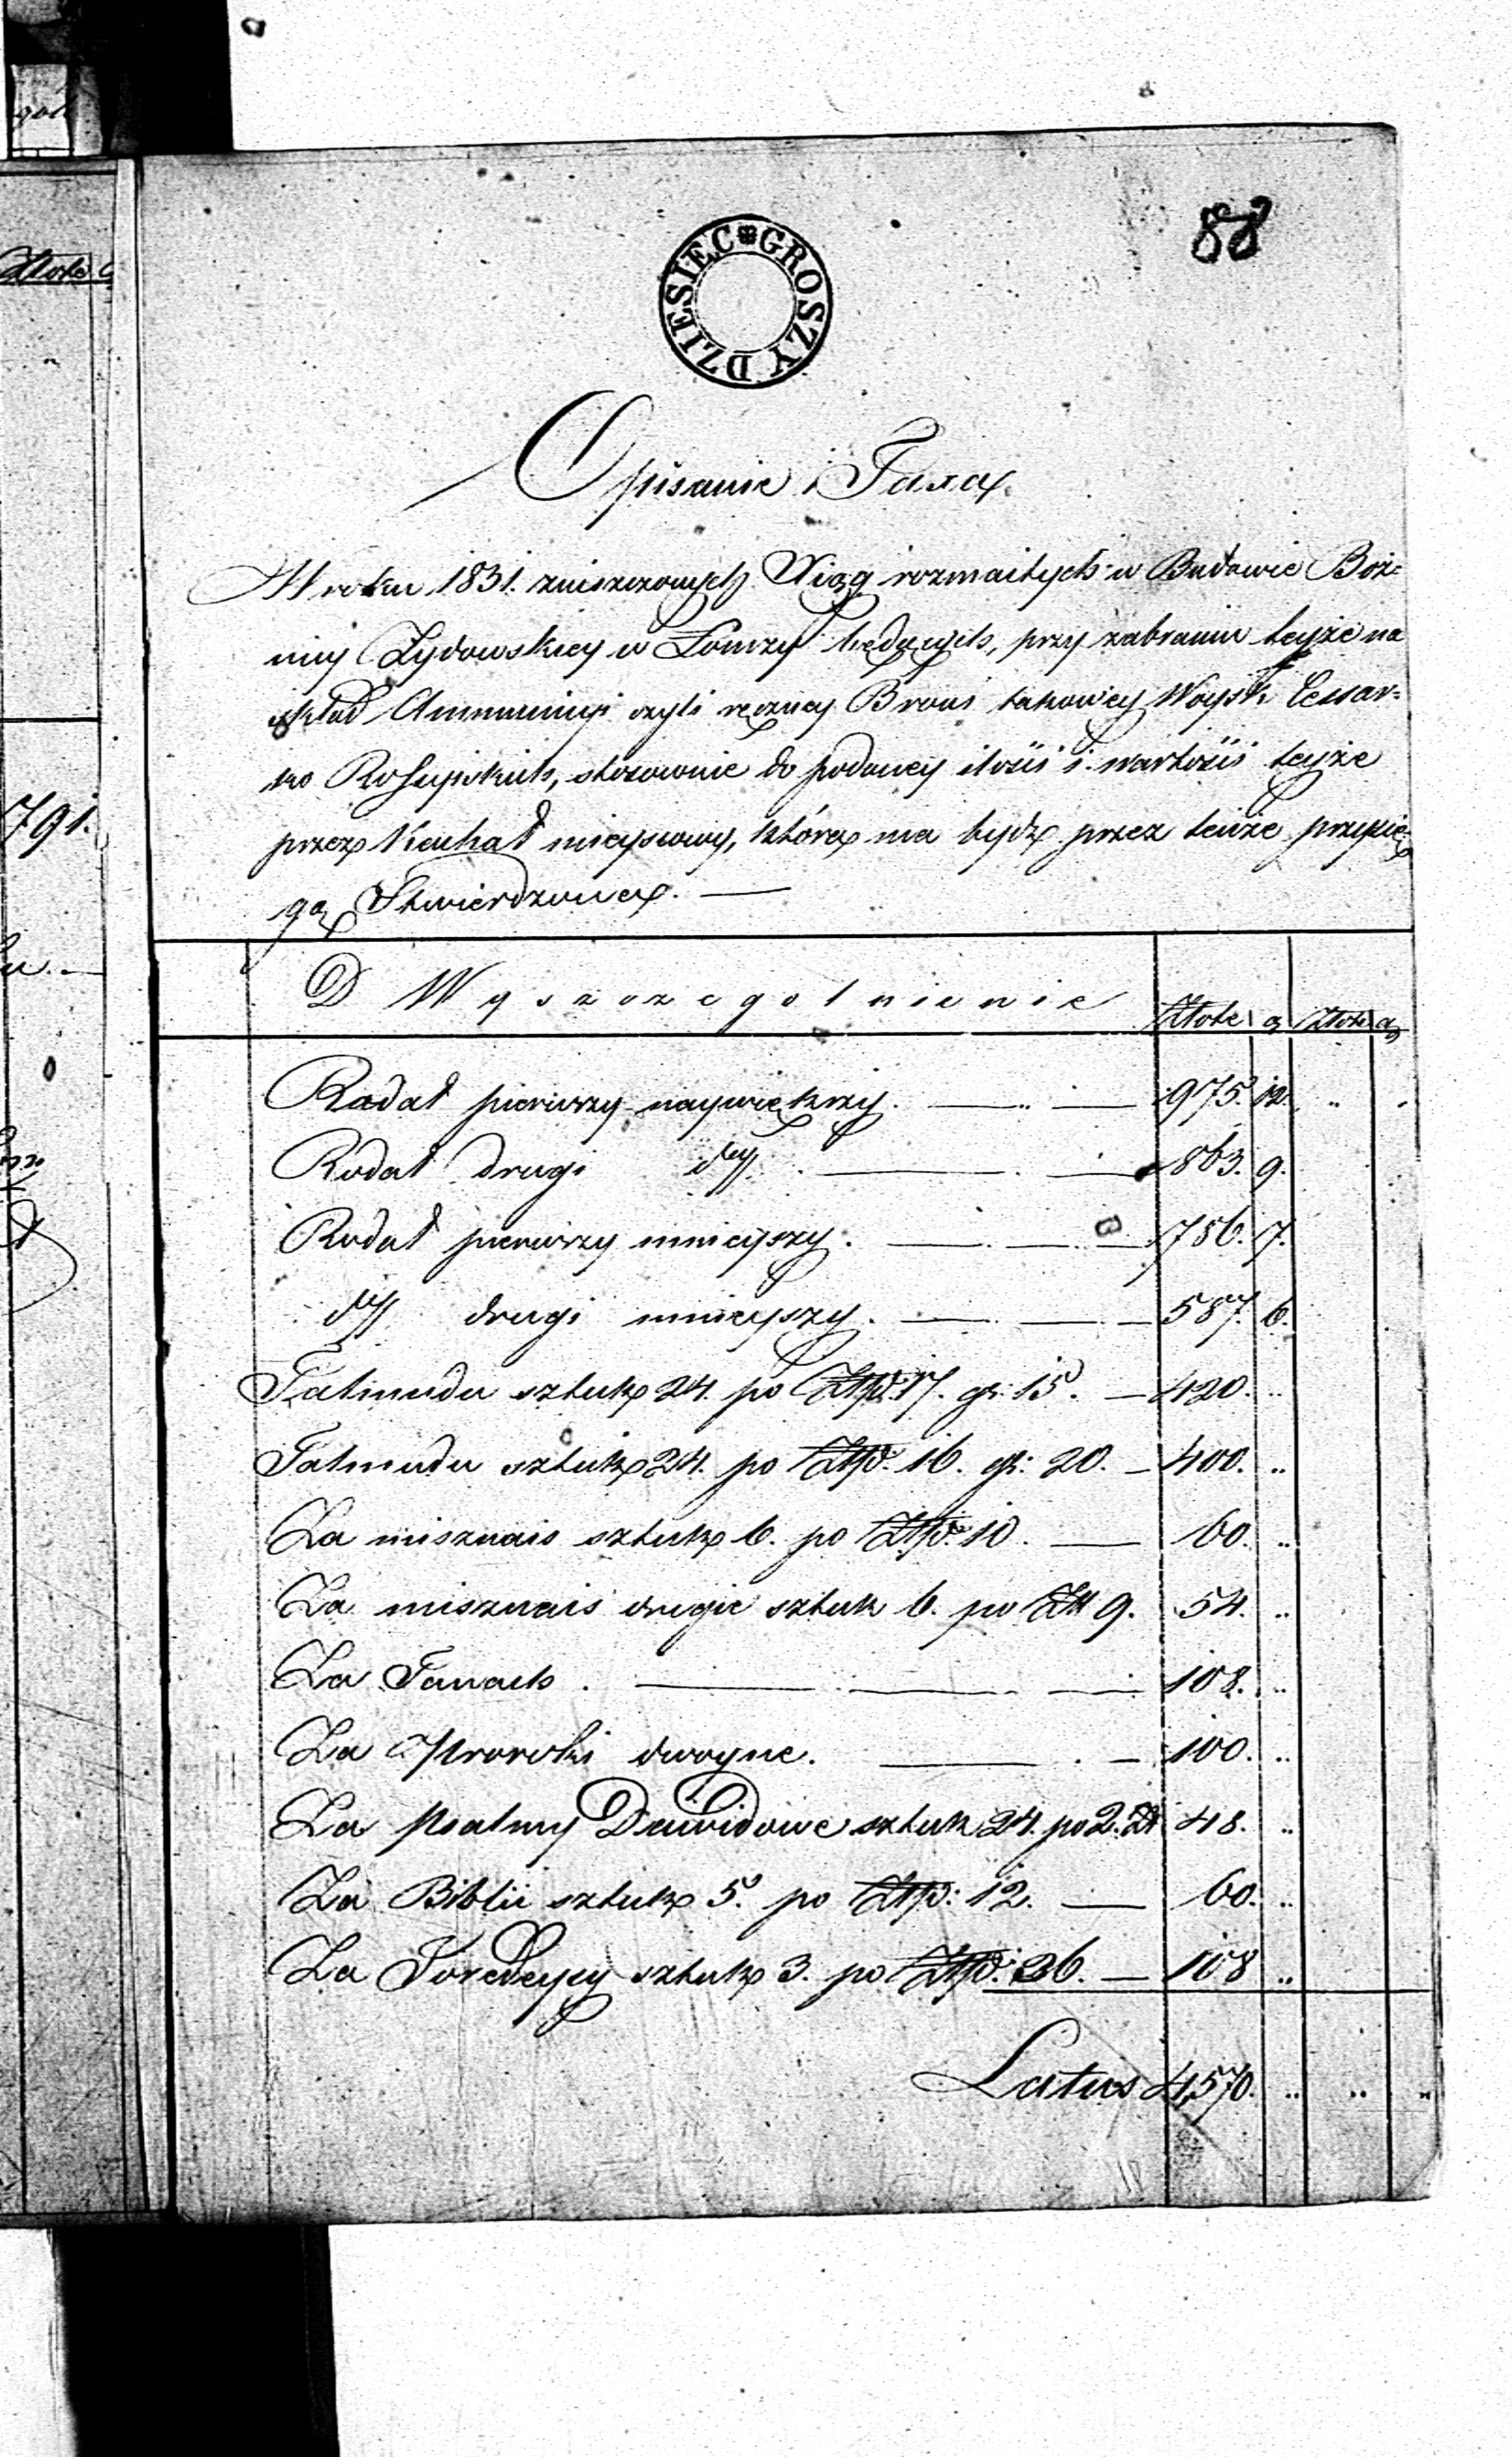 gół
Złote
791.
88
DZIESIEC GROSZY
Opisanie i Taxa
W roku 1831. zniszczonych Xiąg rozmaitych w Budowie Boż=
nicy Żydowskiey w Łomży będących, przy zabraniu teyże na
skład Ammunicyi czyli ręczney Broni takowey Woysk Cesar=
ko Rossyiskich, stosownie do podaney ilości i wartości teyże
przez Kachał mieyscowy, która ma bydź przez tenże przysię=
gą Stwierdzona. —
D Wyszczegolnienie Złote g Złote g
Rodał pierwszy naywiększy. — 975. 12.
Rodał drugi dtt. — 863. 9.
Rodał pierwszy mnieyszy. — 786. 7.
dtt drugi mnieyszy. — 587. 6.
Talmudu sztuk 24. po Złp. 17. gr. 15. — 420. ..
Talmudu sztuk 24. po Złp. 16. gr. 20. — 400. ..
Za misznais sztuk 6. po Złp. 10. — 60. ..
Za misznais drugie sztuk 6. po Zł 9. 54. ..
Za Tanach. — 108. ..
Za Proroki dwoyne. — 100. ..
Za Psalmy Dawidowe sztuk 24. po 2. Zł 48. ..
Za Biblii sztuk 5. po Złp. 12. — 60. ..
Za sztuk 3. po Złp. 36. — 108 ..
Latus 4,570. .. .. ..